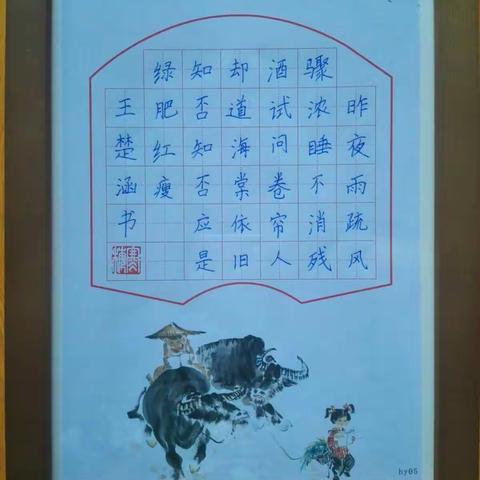 昨夜雨疏风
骤浓睡不消残
酒试问卷帘人
却道海棠依旧
知否知否应是
绿肥红瘦
王楚涵书
hy05